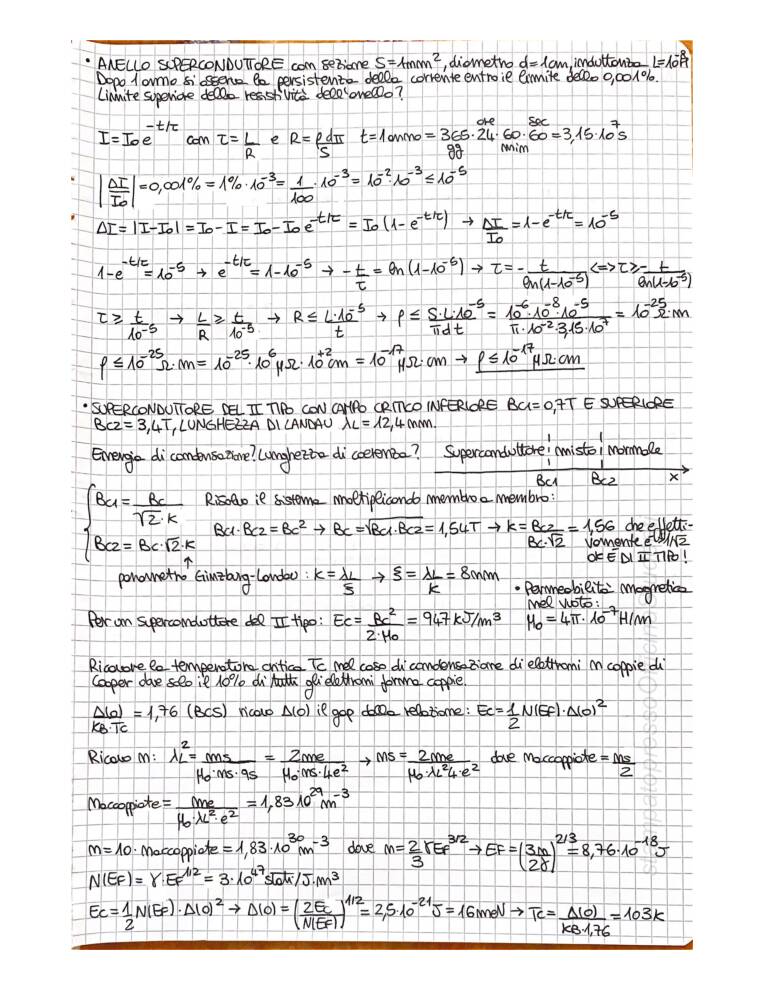 • ANELLO SUPERCONDUTTORE con sezione S=1mm², diametro d=1cm, induttanza L=10⁻⁸H
Dopo 1 anno si osserva la persistenza della corrente entro il limite dello 0,001%.
Limite superiore della resistività dell'anello?
I=I₀e^(-t/τ) con τ=L/R e R=ρdπ/S t=1anno=365·24·60·60=3,15·10⁷s
gg ore min sec
|ΔI/I₀|=0,001%=1%·10⁻³=1/100·10⁻³=10⁻²·10⁻³≤10⁻⁵
ΔI=|I-I₀|=I₀-I=I₀-I₀e^(-t/τ)=I₀(1-e^(-t/τ)) → ΔI/I₀=1-e^(-t/τ)=10⁻⁵
1-e^(-t/τ)=10⁻⁵ → e^(-t/τ)=1-10⁻⁵ → -t/τ=ln(1-10⁻⁵) → τ=-t/ln(1-10⁻⁵) <=> τ≥-t/ln(1-10⁻⁵)
τ≥t/10⁻⁵ → L/R≥t/10⁻⁵ → R≤L·10⁻⁵/t → ρ≤S·L·10⁻⁵/πdt=10⁻⁶·10⁻⁸·10⁻⁵/π·10⁻²·3,15·10⁷=10⁻²⁵Ω·m
ρ≤10⁻²⁵Ω·m=10⁻²⁵·10⁶μΩ·10⁺²cm=10⁻¹⁷μΩ·cm → ρ≤10⁻¹⁷μΩ·cm
• SUPERCONDUTTORE DEL II TIPO CON CAMPO CRITICO INFERIORE Bc1=0,7T E SUPERIORE
Bc2=3,4T, LUNGHEZZA DI LANDAU λL=12,4nm.
Energia di condensazione? Lunghezza di coerenza? Superconduttore misto normale
Bc1 Bc2 x
{Bc1=Bc/√2·k Risolvo il sistema moltiplicando membro a membro:
Bc1·Bc2=Bc² → Bc=√Bc1·Bc2=1,54T → k=Bc2/Bc·√2=1,56 che effetti-
Bc2=Bc·√2·k vamente è >1/√2
OK È DI II TIPO!
parametro Ginzburg-Landau: k=λL/ξ → ξ=λL/k=8nm
• Permeabilità magnetica
nel vuoto:
μ₀=4π·10⁻⁷H/m
Per un superconduttore del II tipo: Ec=Bc²/2·μ₀=947kJ/m³
Ricavare la temperatura critica Tc nel caso di condensazione di elettroni in coppie di
Cooper dove solo il 10% di tutti gli elettroni forma coppie.
Δ(0)/kB·Tc=1,76 (BCS) ricavo Δ(0) il gap dalla relazione: Ec=1/2 N(EF)·Δ(0)²
Ricavo n: λL²=ms/μ₀·ns·qs=2me/μ₀·ns·4e² → ns=2me/μ₀·λL²4·e² dove naccoppiate=ns/2
naccoppiate=me/μ₀·λL²·e²=1,83·10²⁹m⁻³
n=10·naccoppiate=1,83·10³⁰m⁻³ dove n=2/3 γEF^(3/2) → EF=(3n/2γ)^(2/3)=8,76·10⁻¹⁸J
N(EF)=γ·EF^(1/2)=3·10⁴⁷stati/J·m³
Ec=1/2 N(EF)·Δ(0)² → Δ(0)=(2Ec/N(EF))^(1/2)=2,5·10⁻²¹J=16meV → Tc=Δ(0)/kB·1,76=103K